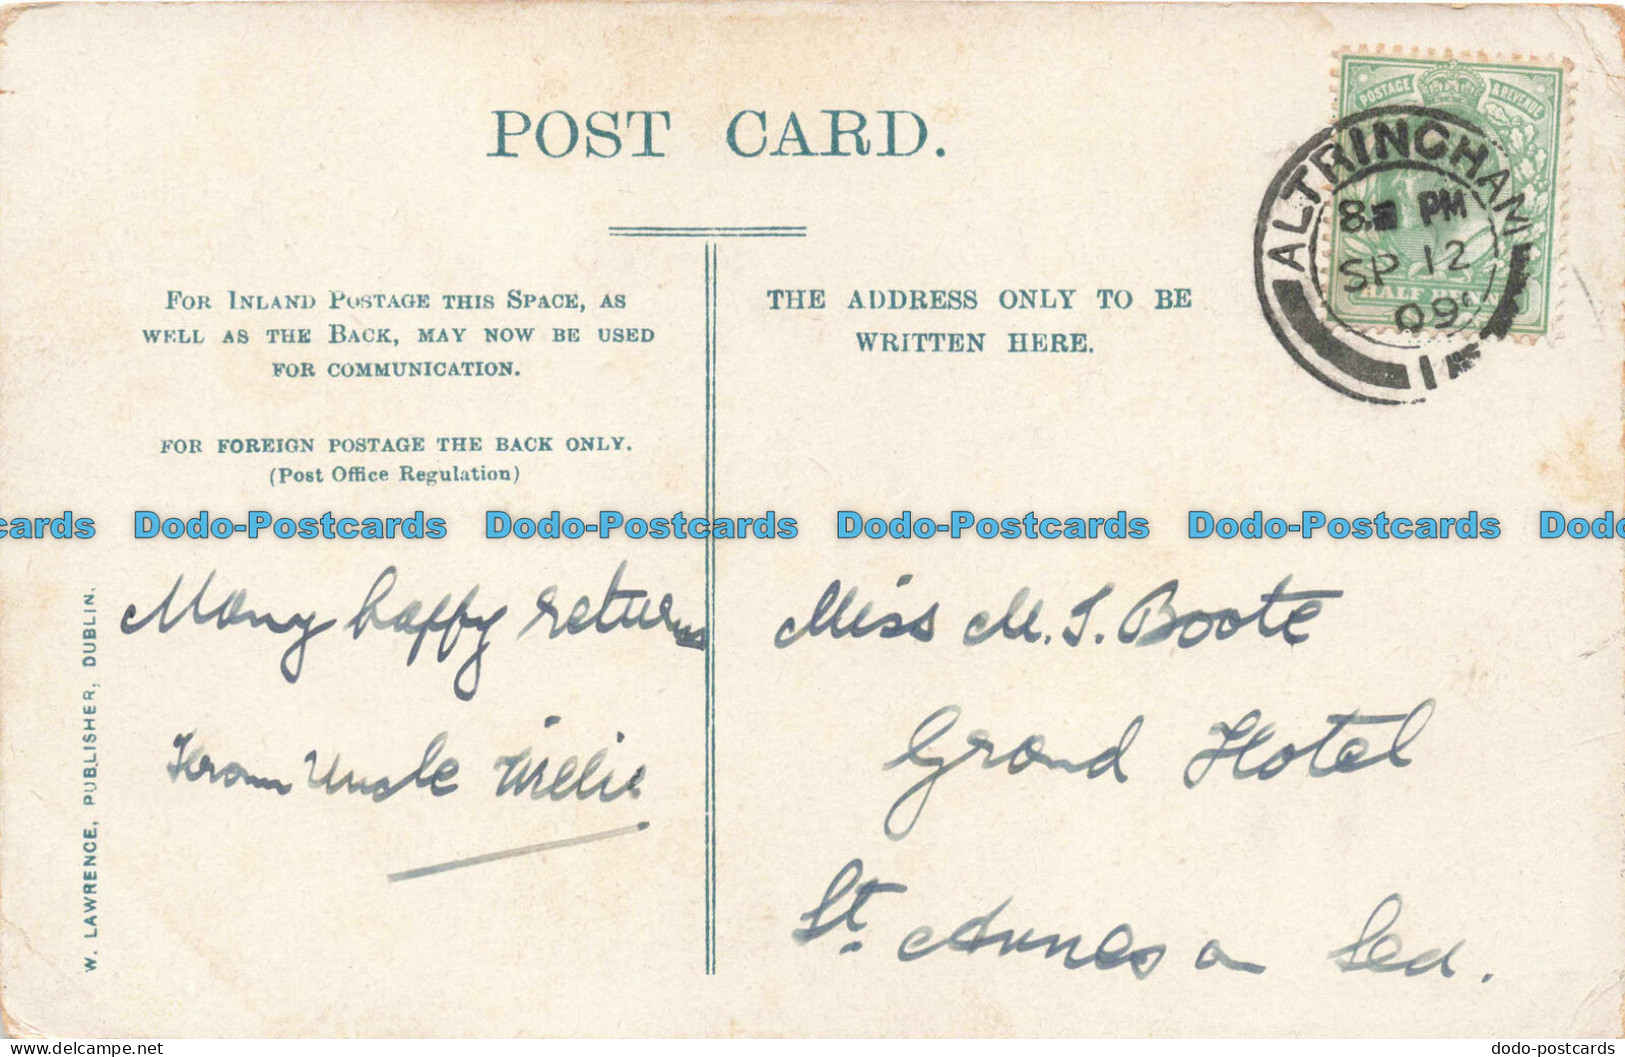 POST CARD.
POSTAGE & REVENUE
ALTRINCHAM
8 PM
SP 12
09
1
HALF PENNY
FOR INLAND POSTAGE THIS SPACE, AS
WELL AS THE BACK, MAY NOW BE USED
FOR COMMUNICATION.
FOR FOREIGN POSTAGE THE BACK ONLY.
(Post Office Regulation)
THE ADDRESS ONLY TO BE
WRITTEN HERE.
cards Dodo-Postcards Dodo-Postcards Dodo-Postcards Dodo-Postcards Dodo
W. LAWRENCE, PUBLISHER, DUBLIN.
Many happy returns
From Uncle Willie
Miss M. J. Boote
Grand Hotel
St. Annes on Sea.
dodo-postcards
Printed for www.delcampe.net